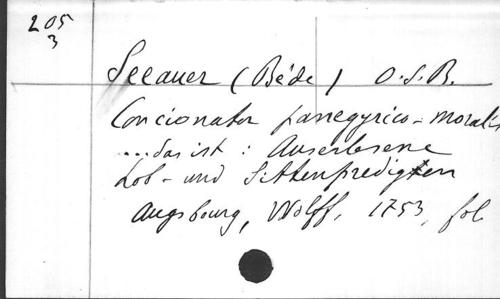 205
3
Seeauer (Béde) O.S.B.
Concionator panegyrico-moralis
...das ist : Auserlesene
Lob- und Sittenpredigten
Augsbourg, Wolff, 1753, fol